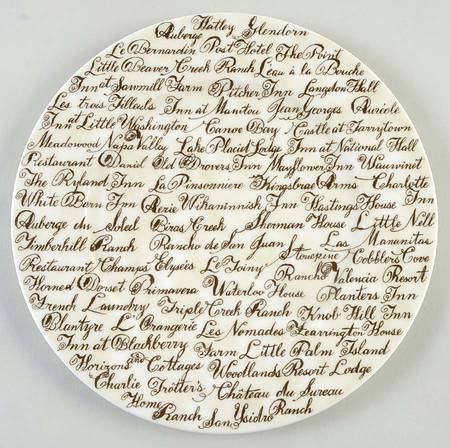 Hatley Glendorn
Auberge
Le Bernardin Post Hotel The Point
Little Beaver Creek Ranch L'eau à la Bouche
Inn at Sawmill Farm Pitcher Inn Langdon Hall
Les trois Tilleuls Inn at Manitou Jean Georges Auricole
Inn at Little Washington Canoe Bay Castle at Tarrytown
Meadowood Napa Valley Lake Placid Lodge Inn at National Hall
Restaurant Daniel Old Drovers Inn Mayflower Inn Wauwinet
The Ryland Inn La Pinsonniere Kingsbrae Arms Charlotte
White Barn Inn Aerie Wickaninnish Inn Hastings House Inn
Auberge du Soleil Biras Creek Sherman House Little Nell
Timberhill Ranch Rancho de San Juan Las Mananitas
Restaurant Champs Elysées Le Toiny Stonepine Cobblers Cove
Horned Dorset Primavera Waterloo House Ranch Valencia Resort
Planters Inn
French Laundry Triple Creek Ranch Knob Hill Inn
Blantyre L'Orangerie Les Nomades Fearrington House
Inn at Blackberry Farm Little Palm Island
Horizons and Cottages Woodlands Resort Lodge
Charlie Trotter's Château du Sureau
Home Ranch San Ysidro Ranch